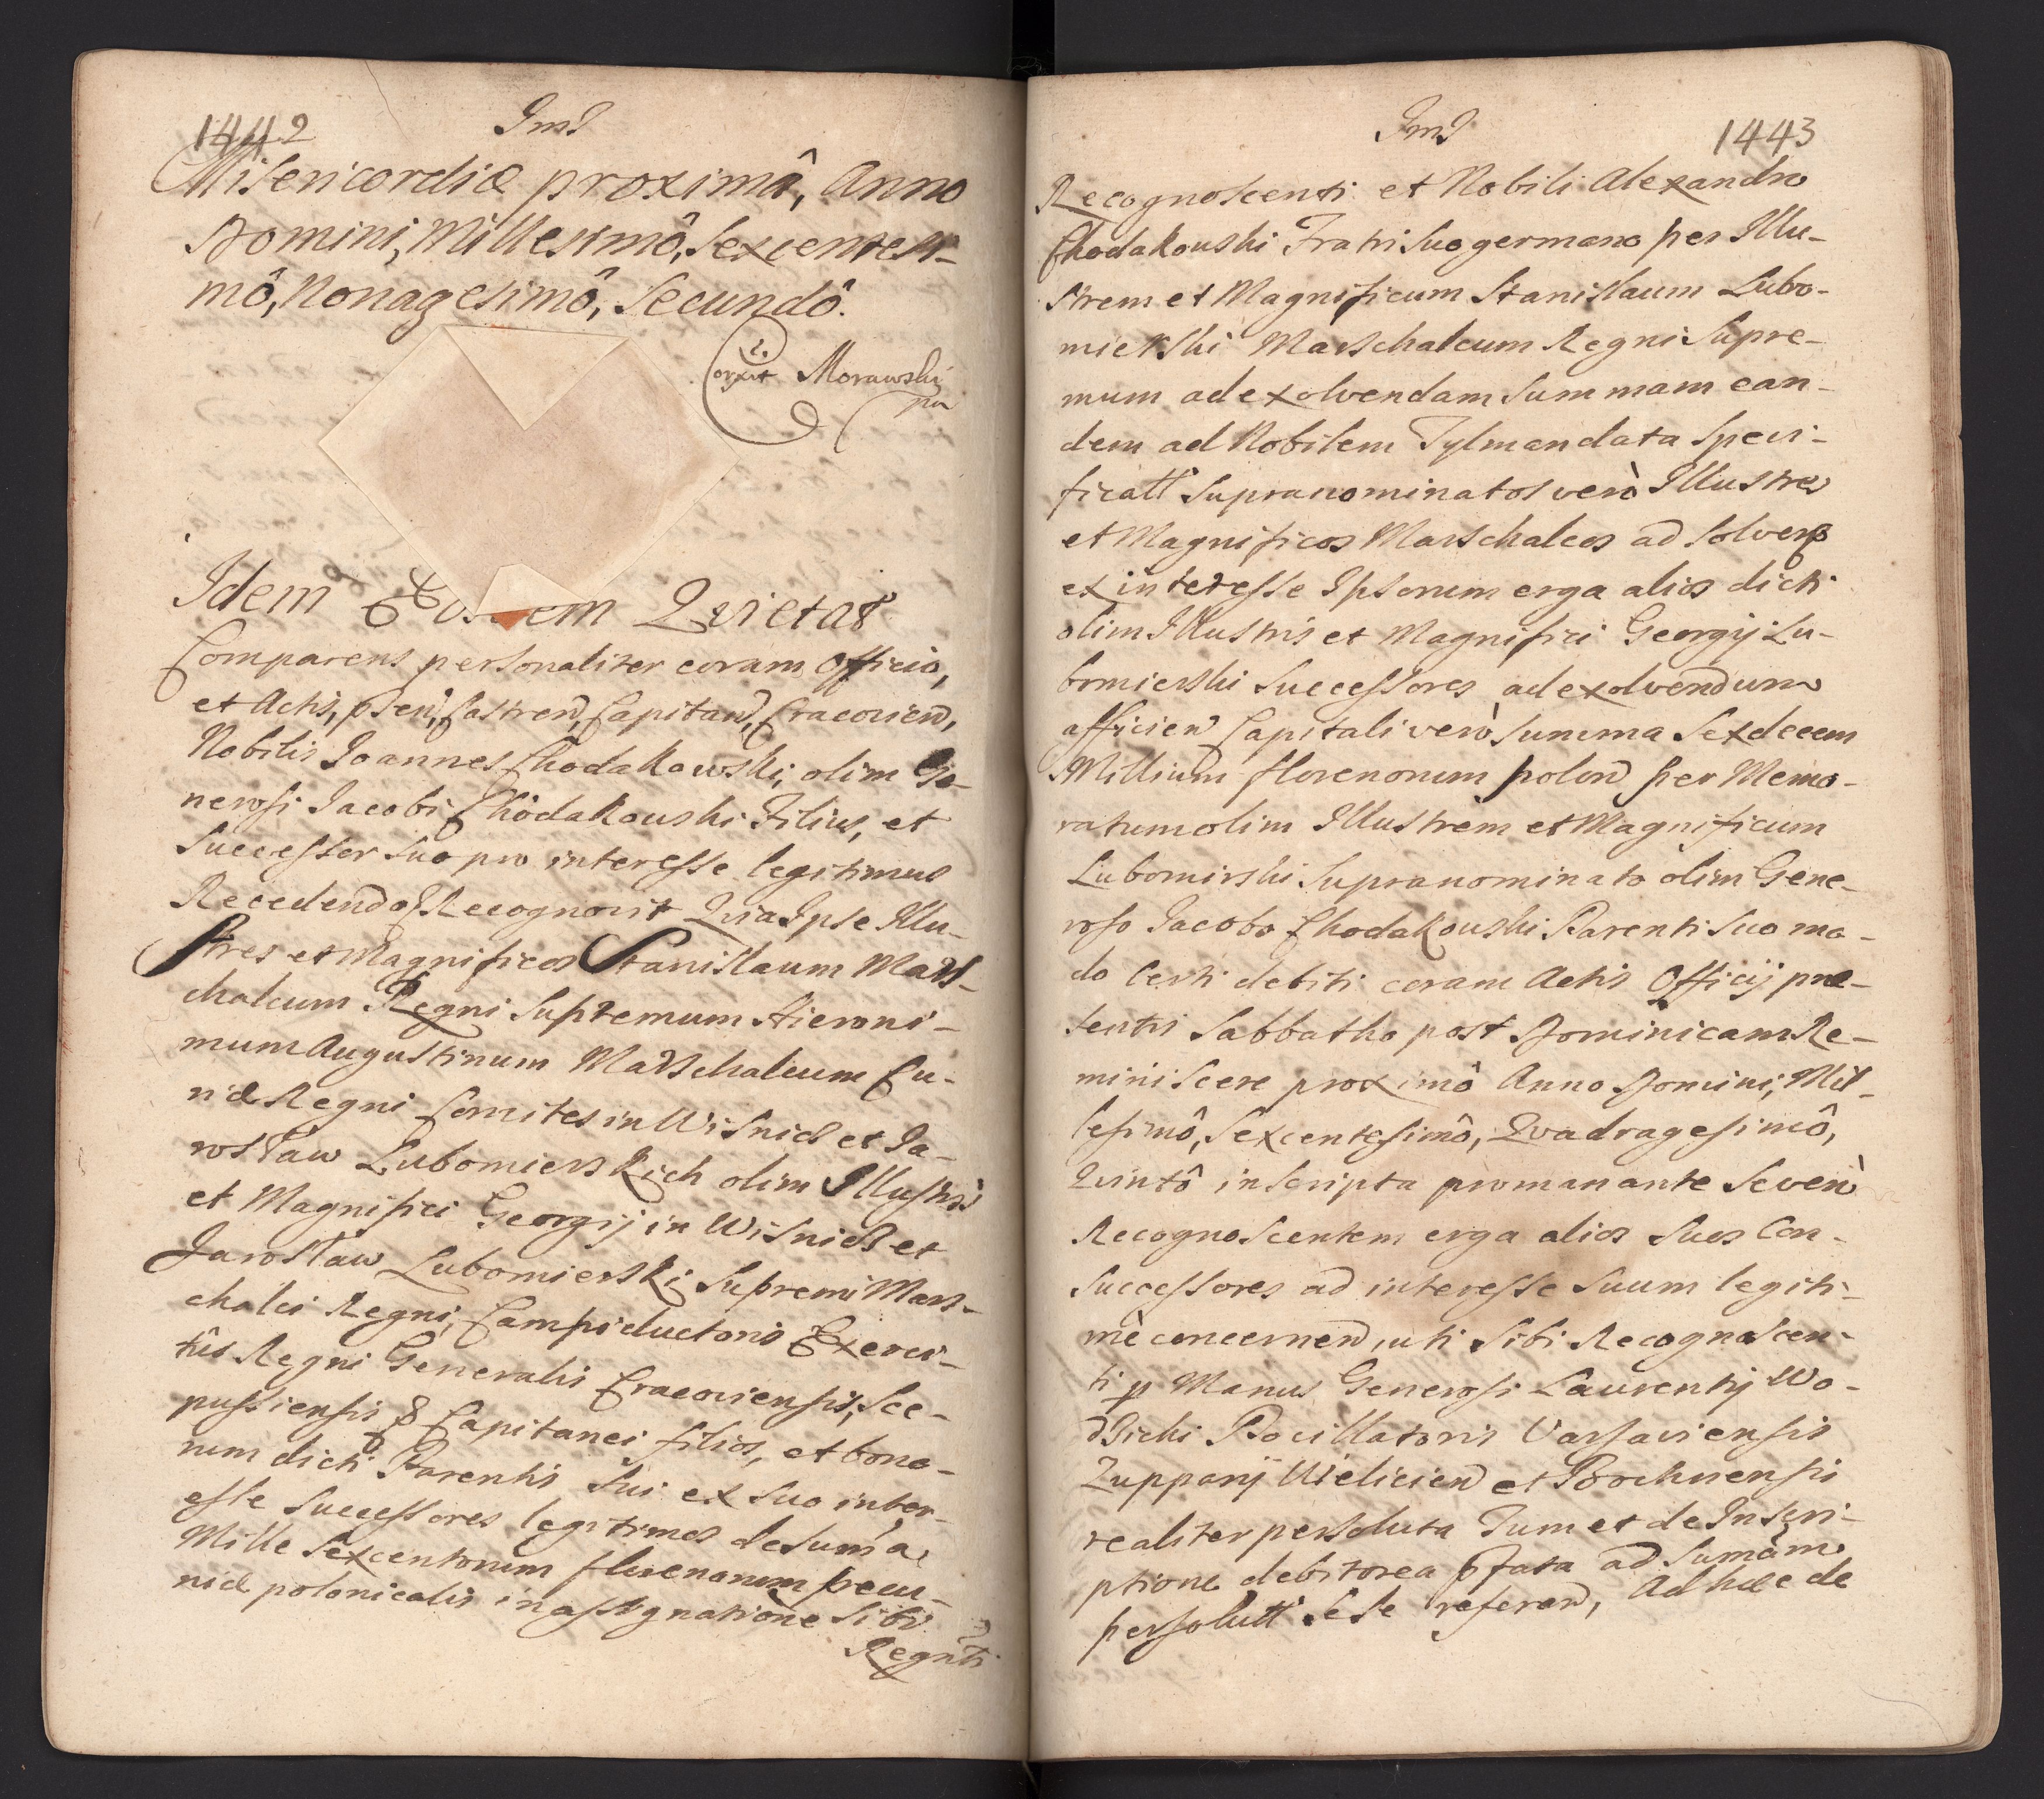 1442
Jms
Misericordiæ proximâ, Anno
Domini, Millesimô, Sexcentesi-
mô, Nonagesimô, Secundô.
Morawski
Idem Eosdem Qvietat
Comparens personaliter coram Officio,
et Actis, psen, Castren, Capitan, Cracovien,
Nobilis Joannes Chodakowski, olim Ge-
nerosi Jacobi Chodakouski Filius, et
Successor suo pro interesse legitimus
Recedendo Recognovit Qvia Ipse Illu-
stres et Magnificos Stanislaum Mars-
chalcum Regni Supremum Hieroni-
mum Augustinum Marschalcum Cu-
riæ Regni Comites in Wisnicz et Ja-
rosław Lubomierskich olim Illustris
et Magnifici Georgij in Wisnicz et
Jarosław Lubomierski Supremi Mars-
chalci Regni, Campiductoris Exerci-
tûs Regni Generalis Cracoviensis, Sce-
pusiensis & Capitanei filios, et bono-
rum dicti Parentis sui ex suo inter-
esse Successores legitimos de sum̃a
Mille Sexcentorum florenorum pecu-
niæ polonicalis in assignatione Sibi
Regnti
Jms
1443
Recognoscenti et Nobili Alexandro
Chodakouski Fratri Suo germano per Illu-
strem et Magnificum Stanislaum Lubo-
mierski Marschalcum Regni Supre-
mum ad exolvendam Summam ean-
dem ad Nobilem Tylman data Speci-
ficatt Supranominatos verò Illustres
et Magnificos Marschalcos ad Solven
ex interesse Ipsorum erga alios dicti
olim Illustris et Magnifici Georgij Lu-
bomierski Successores ad exolvendum
afficien Capitali verò Summa Sexdecem
Millium florenorum polon per Memo-
ratum olim Illustrem et Magnificum
Lubomirski Supranominato olim Gene-
roso Jacobo Chodakouski Parenti Suo mo-
do Certi debiti coram Actis Officij præ-
sentis Sabbatho post Dominicam Re-
miniscere proximô Anno Domini, Mil-
lesimô, Sexcentesimô, Qvadragesimô,
Qvintô inscripta promanante Se verò
Recognoscentem erga alios Suos Con-
Successores ad interesse Suum legiti-
mè concernen, uti Sibi Recognoscen-
ti p Manus Generosi Laurentij Wo-
dzicki Pocillatoris Varsaviensis
Zupparij Wielicien et Bochnensis
realiter persoluta Tum et de Inscri-
ptione debitorea pfata ad Sumam
persolutt Sese referen, Ad hæc de